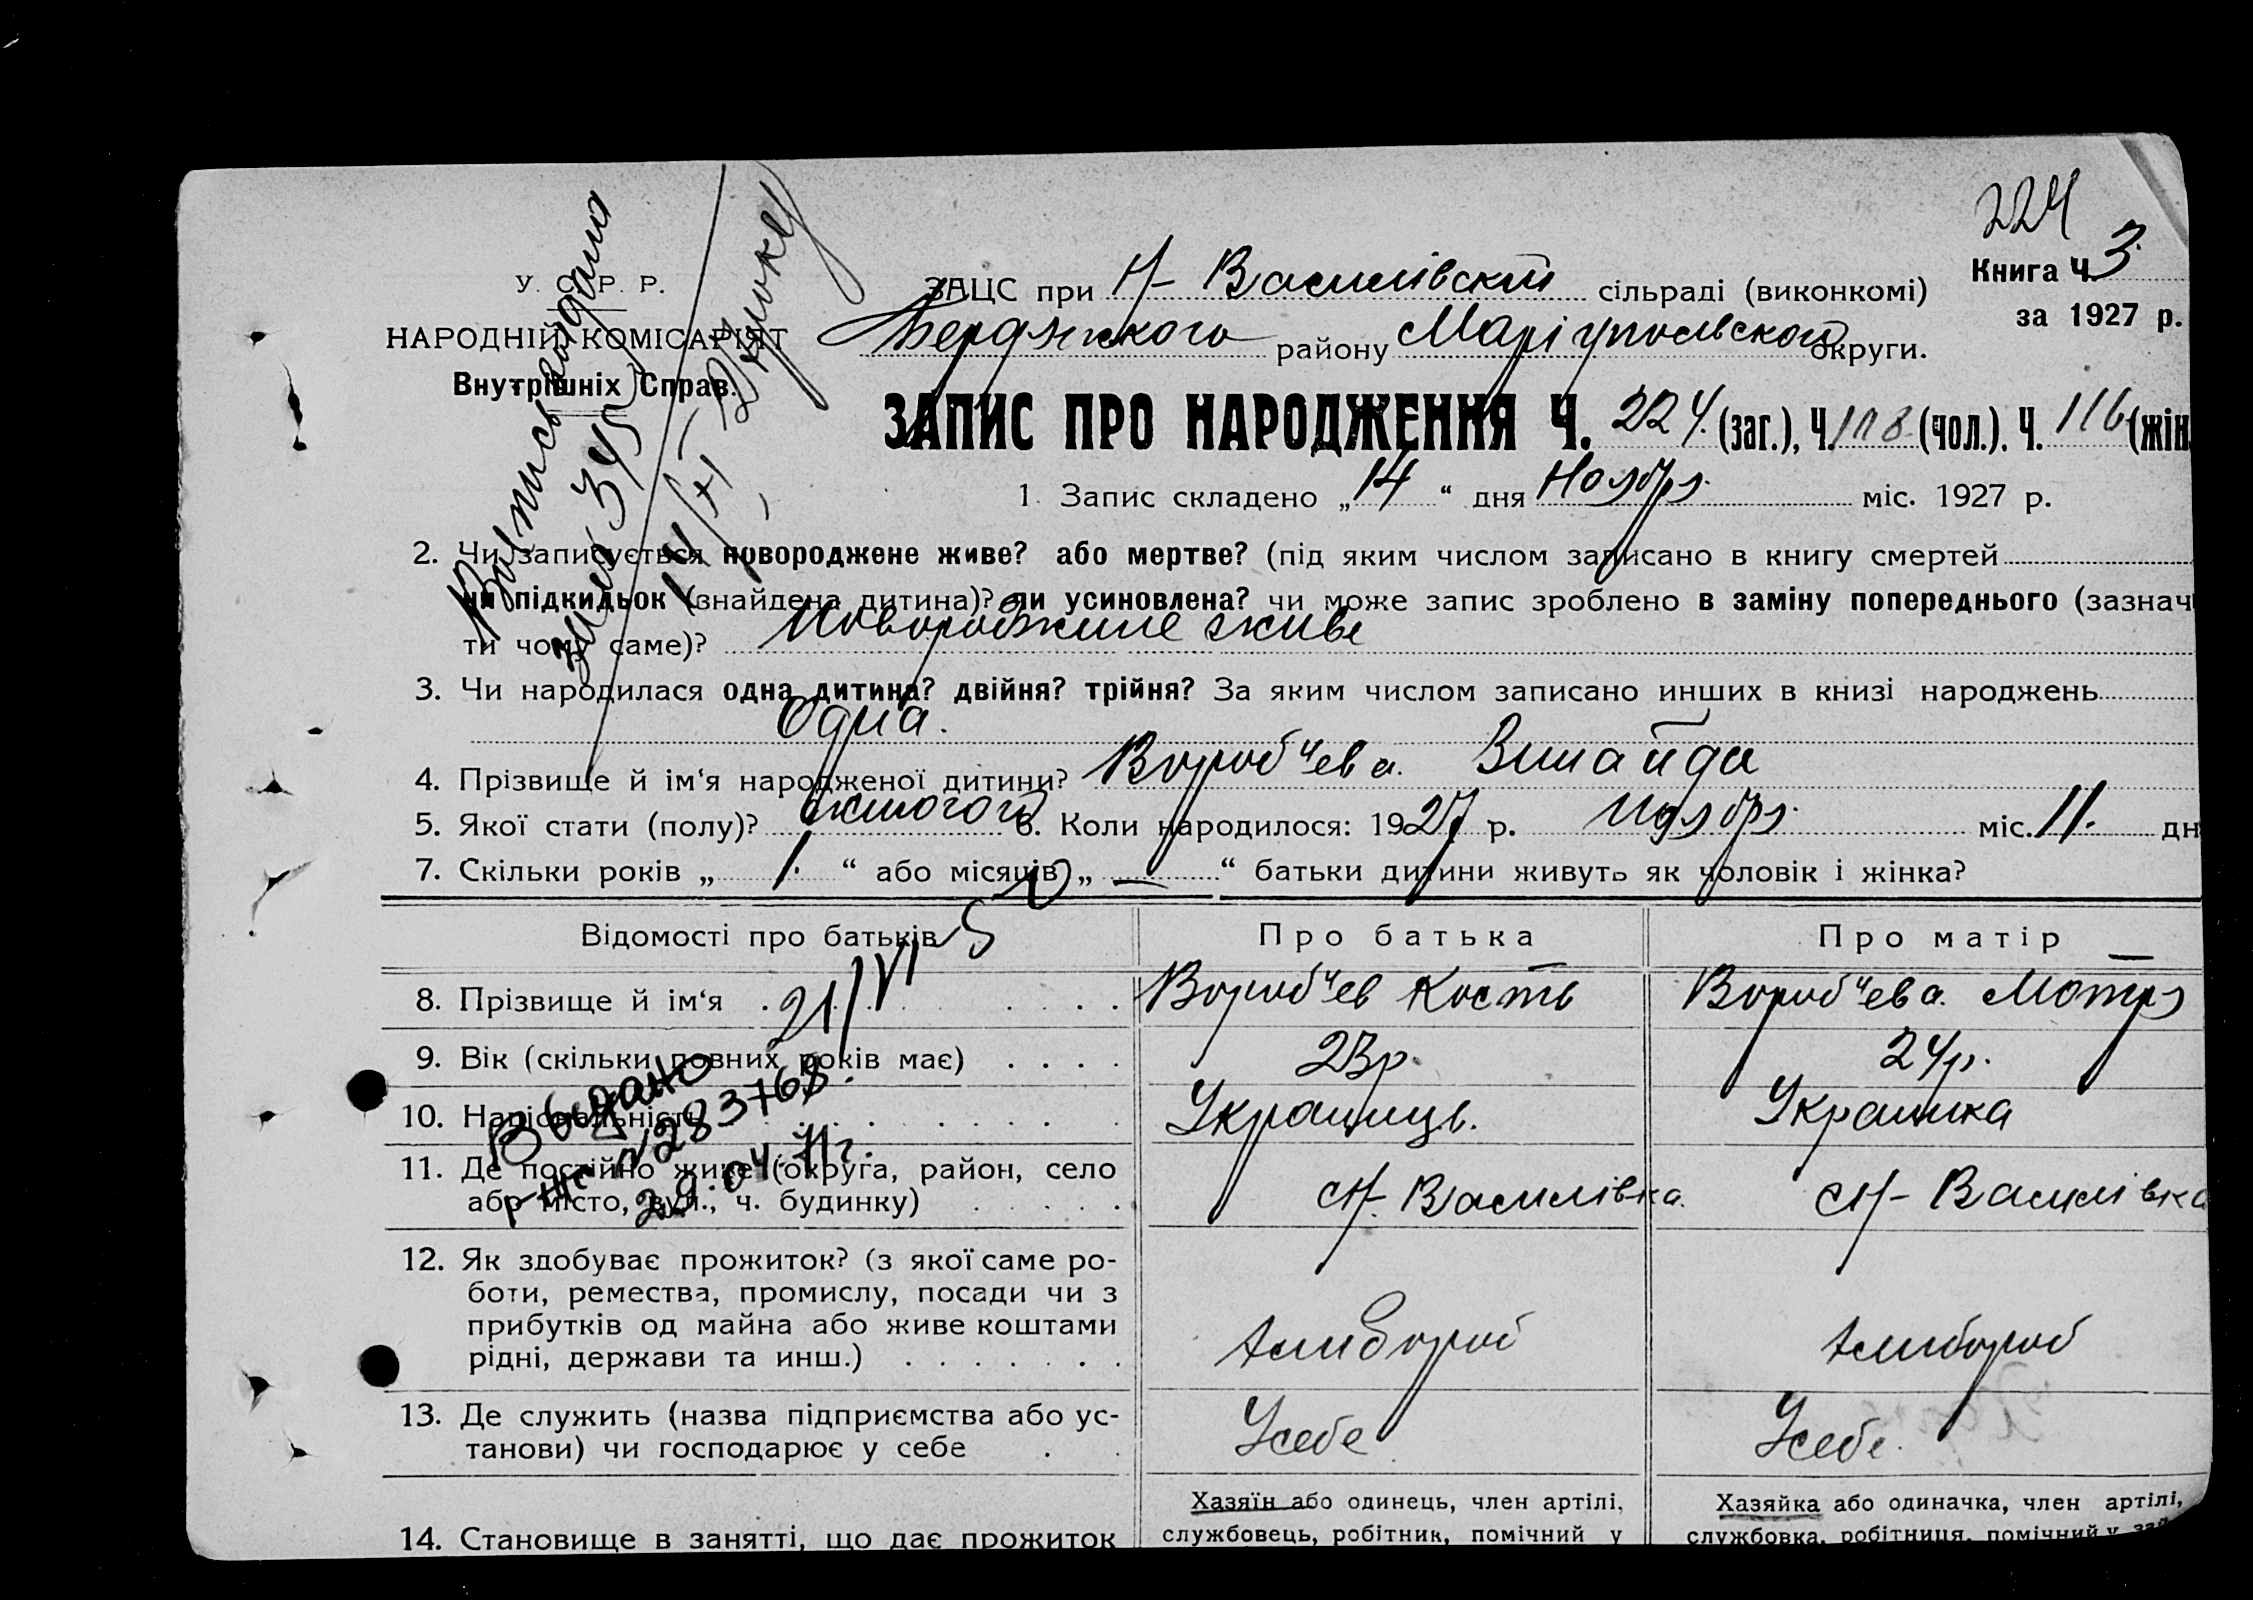 224
У. С. Р. Р.
НАРОДНІЙ КОМІСАРІЯТ
Внутрішніх Справ.
ЗАЦС при Н-Василівскій сільраді (виконкомі)
Книга Ч. 3
за 1927 р.
Бердянского району Маріупольвского округи.
ЗАПИС ПРО НАРОДЖЕННЯ Ч. 224. (заг.), Ч. 108. (чол.). Ч. 116 (жін.
1. Запис складено „ 14 “ дня Ноября міс. 1927 р.
2. Чи записується новороджене живе? або мертве? (під яким числом записано в книгу смертей
чи підкидьок (знайдена дитина)? чи усиновлена? чи може запис зроблено в заміну попереднього (зазнач
ти чому саме)? Новороджине живе
3. Чи народилася одна дитина? двійня? трійня? За яким числом записано инших в книзі народжень
Одна.
4. Прізвище й ім‘я народженої дитини? Воробчева. Зинайда
5. Якої стати (полу)? жиночого 6. Коли народилося: 1927 р. Ноября міс. 11. дн
7. Скільки років „ 1. “ або місяців „ — “ батьки дитини живуть як чоловік і жінка?
Відомості про батьків
Про батька
Про матір
8. Прізвище й ім‘я
Воробчев Кость
Воробчева. Мотря
9. Вік (скільки повних років має)
23р.
24р.
10. Національність
Украинць.
Украинка
11. Де постійно живе (округа, район, село
або місто, вул., ч. будинку)
Н-Василівка.
Н-Василівка
12. Як здобуває прожиток? (з якої саме ро-
боти, ремества, промислу, посади чи з
прибутків од майна або живе коштами
рідні, держави та инш.)
хлибороб
хлибороб
13. Де служить (назва підприємства або ус-
танови) чи господарює у себе
Усебе
Усебе.
14. Становище в занятті, що дає прожиток
Хазяїн або одинець, член артілі,
службовець, робітник, помічний у
Хазяйка або одиначка, член артілі,
службовка, робітниця, помічний у
Випись видана
345
21/VI
Выдано
№283768.
29.04.71г.